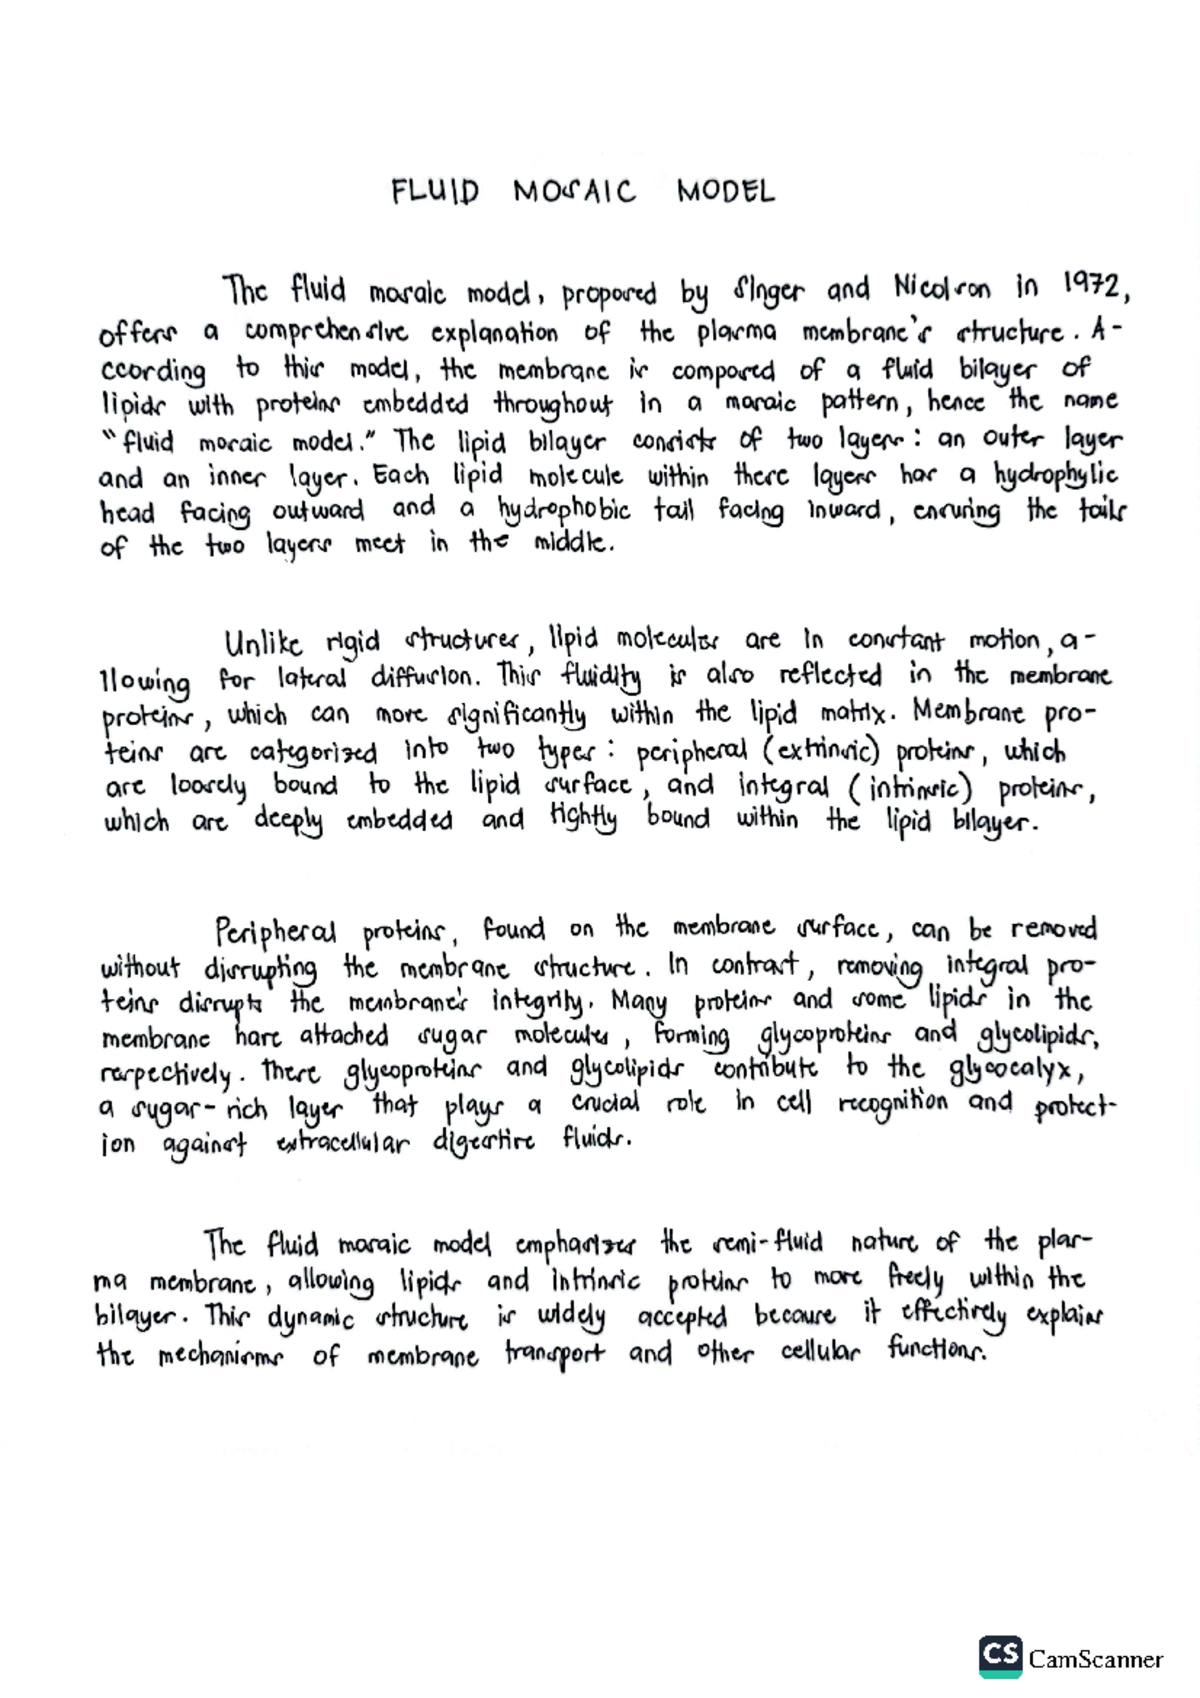 FLUID MOSAIC MODEL
The fluid mosaic model, proposed by Singer and Nicolson in 1972,
offers a comprehensive explanation of the plasma membrane's structure. A-
ccording to this model, the membrane is composed of a fluid bilayer of
lipids with proteins embedded throughout in a mosaic pattern, hence the name
"fluid mosaic model." The lipid bilayer consists of two layers: an outer layer
and an inner layer. Each lipid molecule within these layers has a hydrophylic
head facing outward and a hydrophobic tail facing inward, ensuring the tails
of the two layers meet in the middle.
Unlike rigid structures, lipid molecules are in constant motion, a-
llowing for lateral diffusion. This fluidity is also reflected in the membrane
proteins, which can move significantly within the lipid matrix. Membrane pro-
teins are categorized into two types: peripheral (extrinsic) proteins, which
are loosely bound to the lipid surface, and integral (intrinsic) proteins,
which are deeply embedded and tightly bound within the lipid bilayer.
Peripheral proteins, found on the membrane surface, can be removed
without disrupting the membrane structure. In contrast, removing integral pro-
teins disrupts the membrane's integrity. Many proteins and some lipids in the
membrane have attached sugar molecules, forming glycoproteins and glycolipids,
respectively. These glycoproteins and glycolipids contribute to the glycocalyx,
a sugar-rich layer that plays a crucial role in cell recognition and protect-
ion against extracellular digestive fluids.
The fluid mosaic model emphasizes the semi-fluid nature of the plas-
ma membrane, allowing lipids and intrinsic proteins to move freely within the
bilayer. This dynamic structure is widely accepted because it effectively explains
the mechanisms of membrane transport and other cellular functions.
CS CamScanner